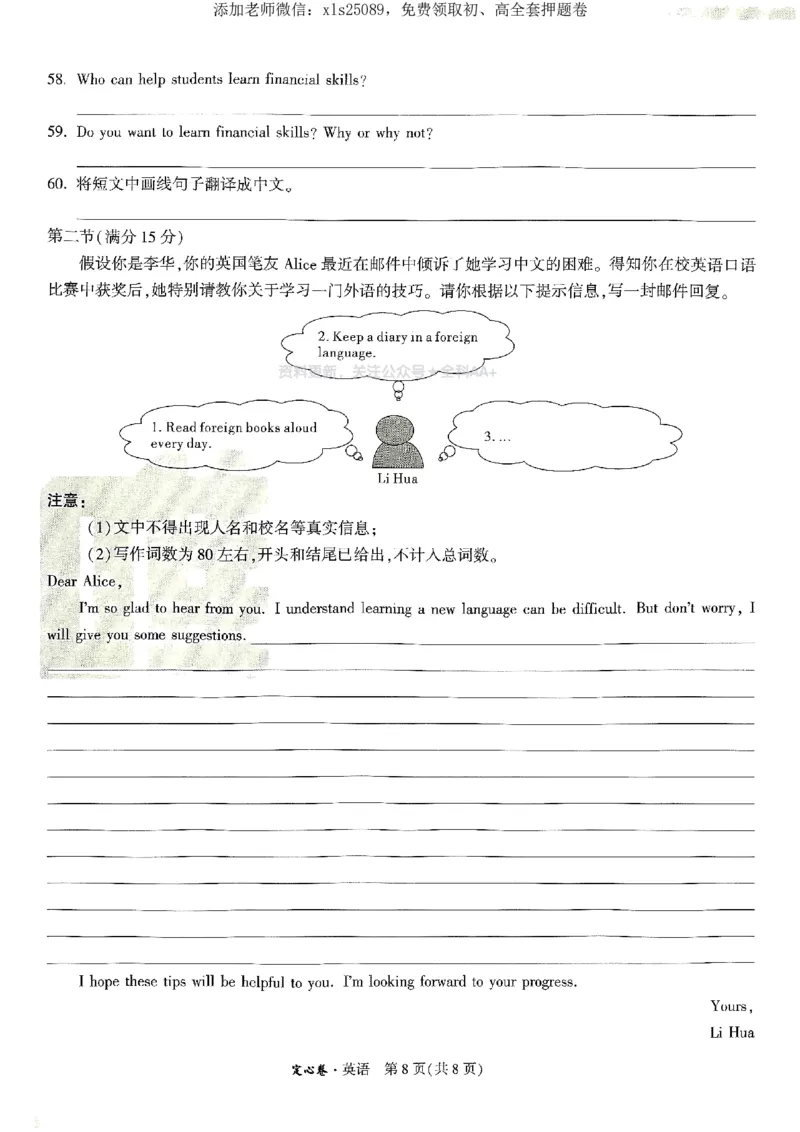 添加老师微信：xls25089，免费领取初、高全套押题卷
58. Who can help students learn financial skills?
59. Do you want to learn financial skills? Why or why not?
60. 将短文中画线句子翻译成中文。
第二节(满分 15 分)
假设你是李华,你的英国笔友 Alice 最近在邮件中倾诉了她学习中文的困难。得知你在校英语口语
比赛中获奖后,她特别请教你关于学习一门外语的技巧。请你根据以下提示信息,写一封邮件回复。
2. Keep a diary in a foreign
language.
资料更新，关注公众号：全科AA+
1. Read foreign books aloud
every day.
3. ...
Li Hua
注意：
(1)文中不得出现人名和校名等真实信息；
(2)写作词数为 80 左右,开头和结尾已给出,不计入总词数。
Dear Alice,
I'm so glad to hear from you. I understand learning a new language can be difficult. But don't worry, I
will give you some suggestions.
I hope these tips will be helpful to you. I'm looking forward to your progress.
Yours,
Li Hua
定心卷·英语 第 8 页(共 8 页)